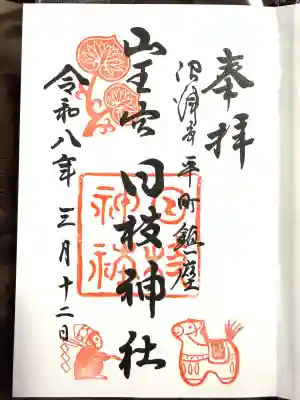 奉拝
沼津市平町鎮座
山王宮 日枝神社
日枝神社
令和八年三月十二日